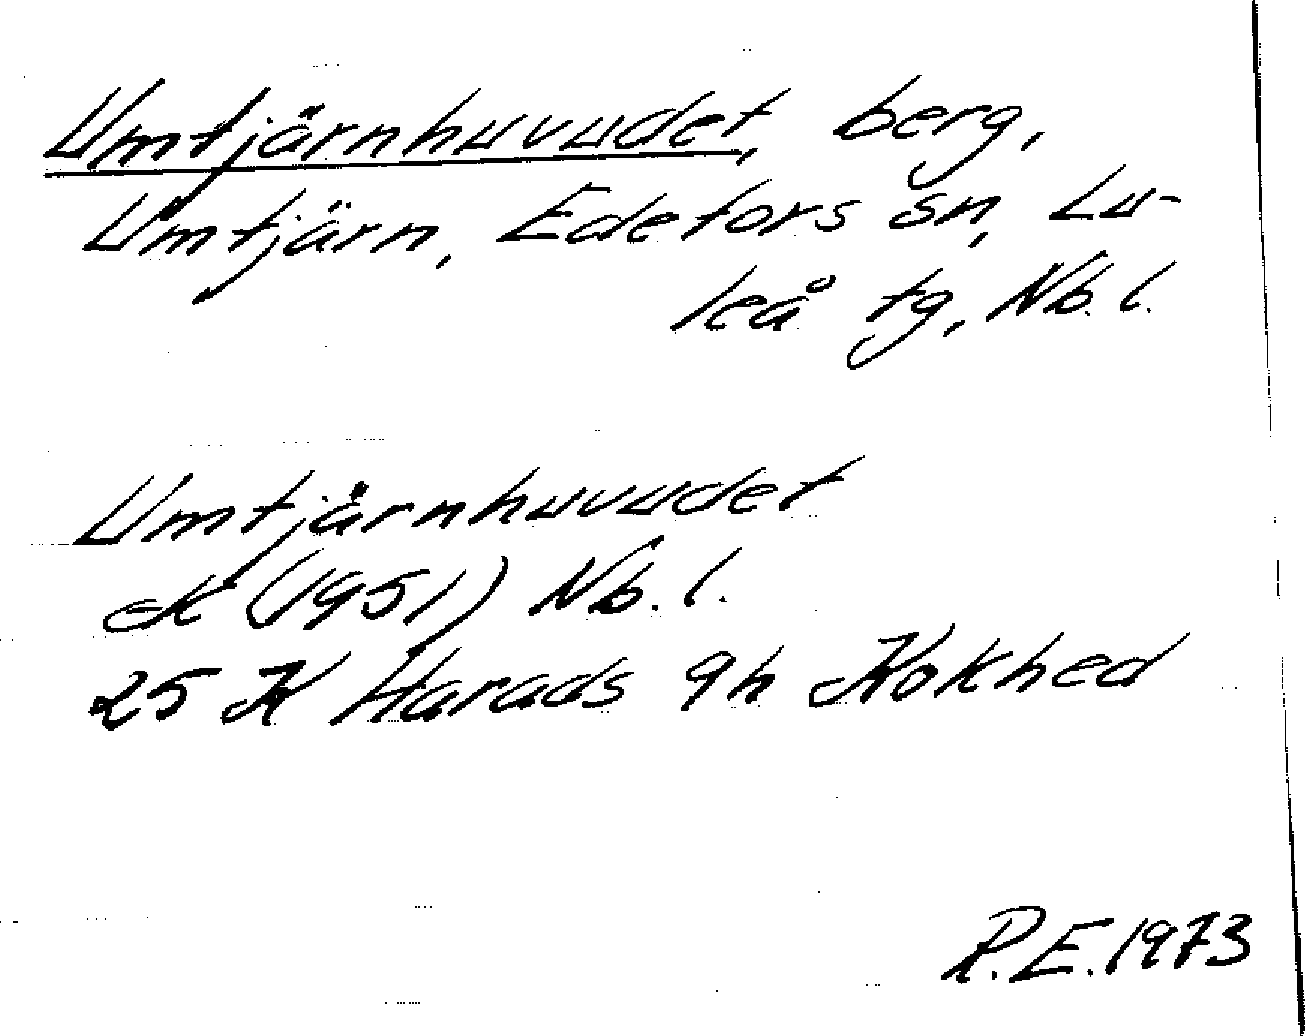 Umtjärnhuvudet, berg,
Umtjärn, Edefors sn, Lu-
leå tg, Nb. l.
Umtjärnhuvudet
eK (1951) Nb. l.
25 K Harads 9h Kokhed
R.E. 1973